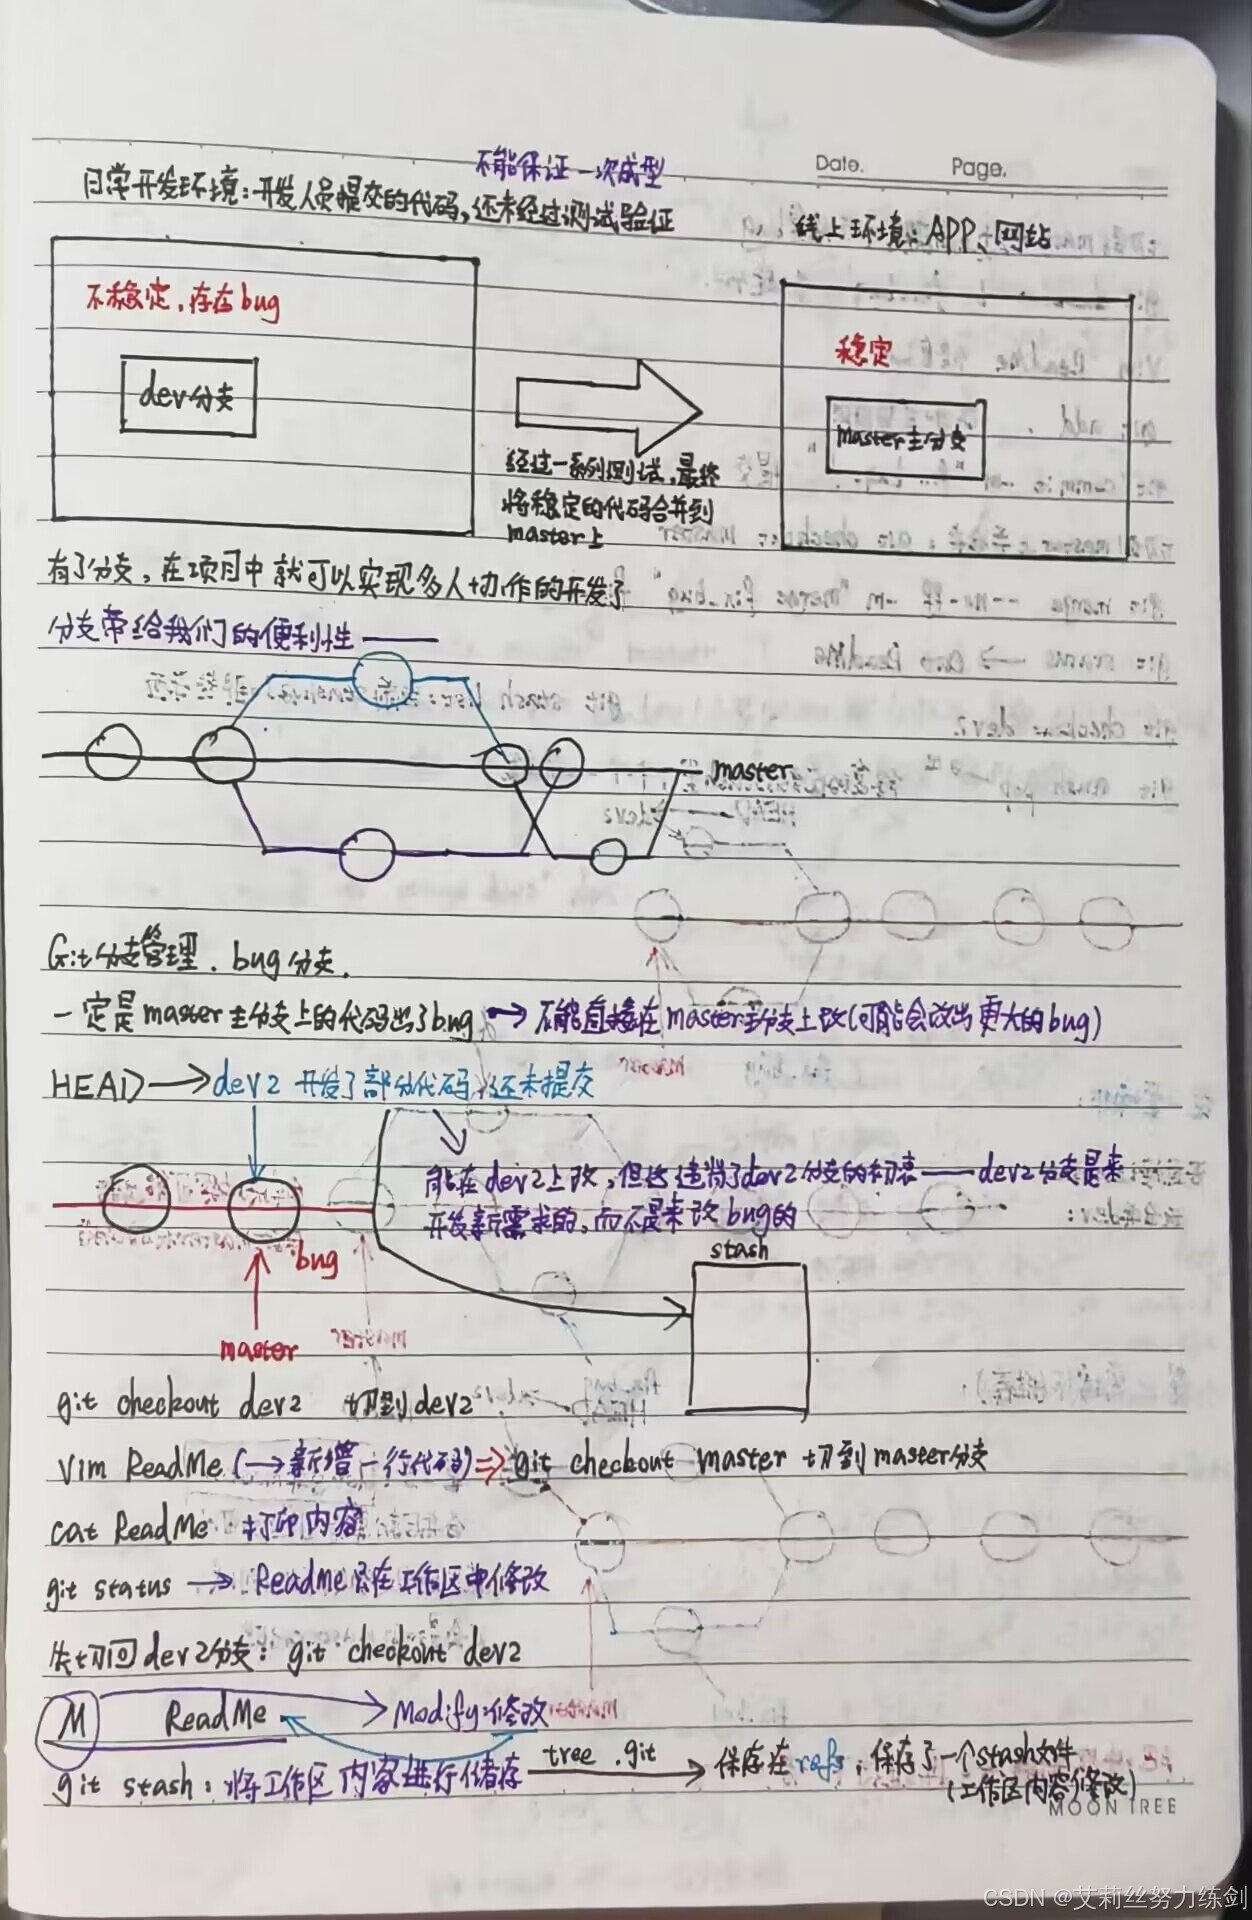 Date. Page.
不能保证一次成型
日常开发环境：开发人员提交的代码，还未经过测试验证
线上环境：APP、网站
不稳定，存在bug
dev分支
稳定
master主分支
经过一系列测试，最终
将稳定的代码合并到
master上
有了分支，在项目中就可以实现多人协作的开发了
分支带给我们的便利性——
master
Git分支管理．bug分支．
一定是master主分支上的代码出了bug → 不能直接在master主分支上改(可能会改出更大的bug)
HEAD → dev2 开发了部分代码，还未提交
能在dev2上改，但这违背了dev2分支的初衷——dev2分支是来
开发新需求的，而不是来改bug的
bug
stash
master
git checkout dev2 切到dev2
vim ReadMe (→新增一行代码) ⇒ git checkout master 切到master分支
cat ReadMe 打印内容
git status → ReadMe只在工作区中修改
先切回dev2分支：git checkout dev2
M ReadMe → Modify：修改
git stash：将工作区内容进行储存 tree .git → 保存在refs，保存了一个stash文件
(工作区内容修改)
MOON TREE
CSDN @艾莉丝努力练剑